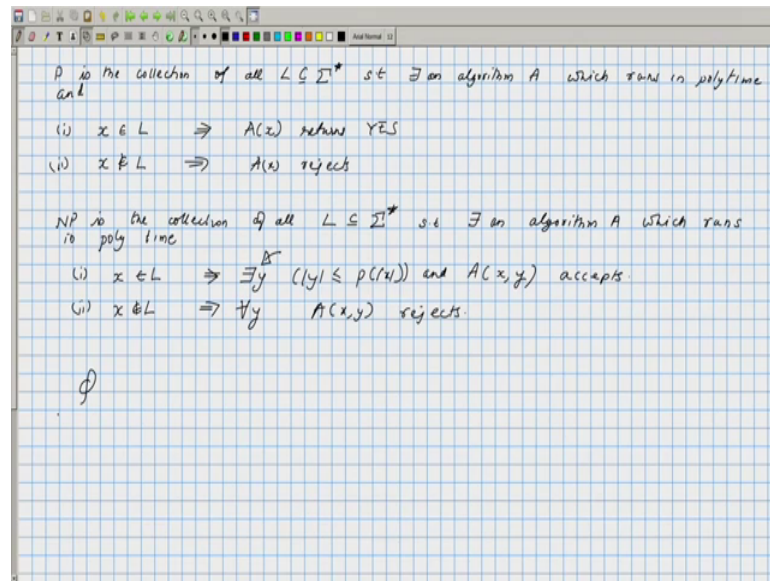 P is the collection of all L ⊆ Σ* s t ∃ an algorithm A which runs in polytime
and
(i) x ∈ L ⇒ A(x) returns YES
(ii) x ∉ L ⇒ A(x) rejects
NP is the collection of all L ⊆ Σ* s.t ∃ an algorithm A which runs
in poly time
(i) x ∈ L ⇒ ∃y (|y| ≤ p(|x|)) and A(x, y) accepts.
(ii) x ∉ L ⇒ ∀y A(x, y) rejects.
φ